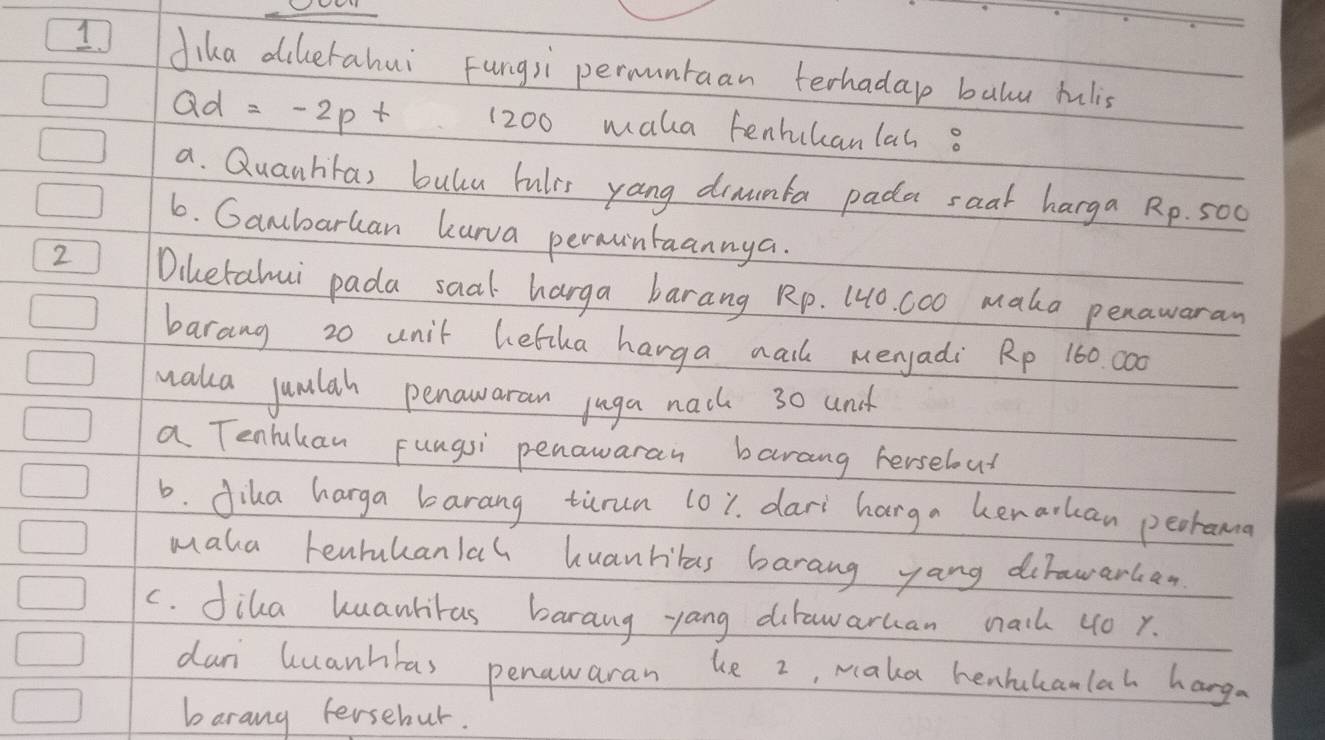 1. Jika diketahui fungsi permintaan terhadap buku tulis
Qd = -2p + 1200 maka tentukanlah :
a. Quantitas buku tulis yang diminta pada saat harga Rp. 500
b. Gambarkan kurva permintaannya.
2 Diketahui pada saat harga barang Rp. 140.000 maka penawaran
barang 20 unit ketika harga naik menjadi Rp 160.000
maka jumlah penawaran juga naik 30 unit
a Tentukan fungsi penawaran barang tersebut
b. Jika harga barang turun 10%. dari harga kenaikan pertama
maka tentukanlah kuantitas barang yang ditawarkan.
c. Jika kuantitas barang yang ditawarkan naik 40 %.
dari kuantitas penawaran ke 2, maka tentukanlah harga
barang tersebut.